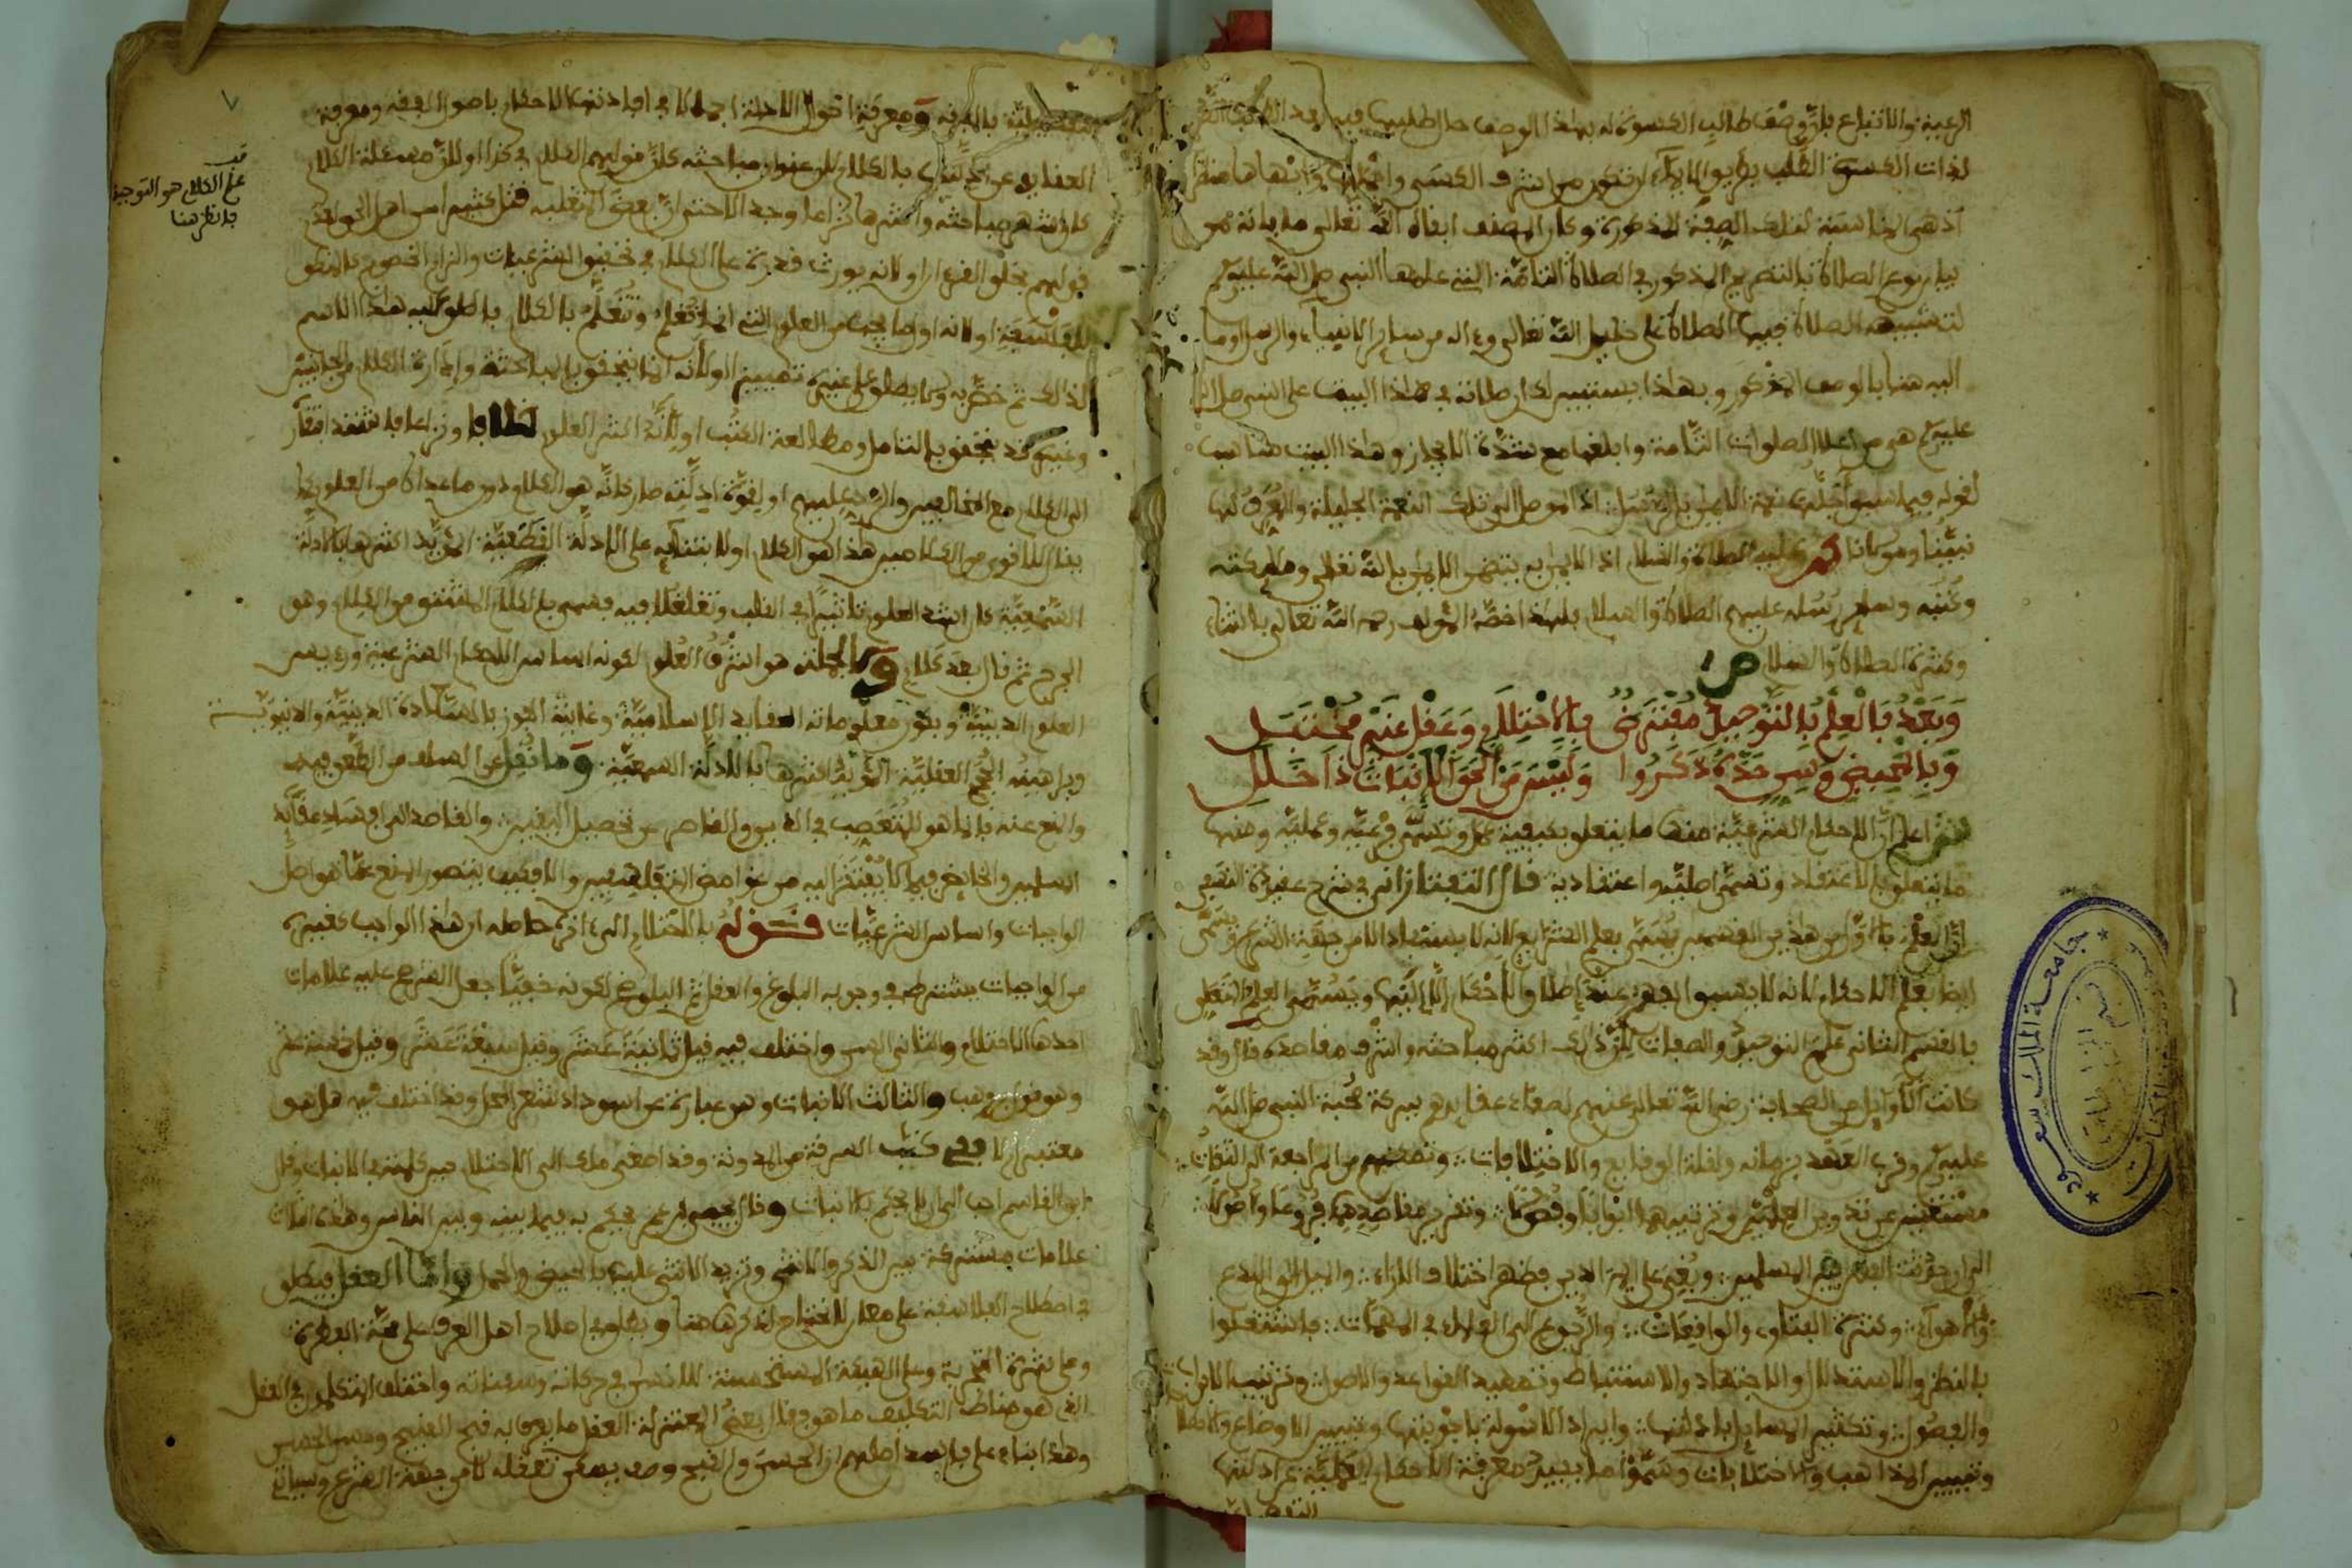 لذات الكسوة القلب
اذ هي المناسبة لتلك الصفة المذكورة وكان المصنف ابقاه الله تعالى
الصلاة بالتضرع المذكور في الصلاة التامة التي علمها النبي صلى الله عليه
لتشبيه الصلاة فيها الصلاة على خليل الله تعالى وءاله من سائر الانبياء والرسل
اليه هنا بالوصف المذكور وبهذا يستبين لك ان صلاته في هذا البيت على النبي صلى الله
عليه هي من اعلا الصلوات التامة وابلغها مع شدة الايجاز وهذا البيت مناسب
لقوله فيما سبق نعمة الايمان بالرسل اذ الموصل الى تلك النعمة الجليلة والمعرف لها
نبينا ومولانا محمد عليه الصلاة والسلام اذ الايمان به يتضمن الايمان بالله تعالى وملائكته
وكتبه وسائر رسله عليهم الصلاة والسلام فلهذا خصه المؤلف رحمه الله تعالى بالثناء
وكثرة الصلاة والسلام ص
وَبَعْدُ فَالْعِلْمُ بِالتَّوْحِيدِ مُفْتَرَضٌ بِالِاحْتِلَامِ وَعَقْلٍ غَيْرِ مُخْتَبَلِ
وَبِالْمَحِيضِ وَسِنٍّ حَدُّهُ ذَكَرُوا وَلَيْسَ مَنْ أَلْحَقَ الْإِنْبَاتَ ذَا خَلَلِ
ش اعلم ان الاحكام الشرعية منها ما يتعلق بكيفية عمل وتسمى فرعية وعملية ومنها
ما يتعلق بالاعتقاد وتسمى اصلية واعتقادية قال التفتازاني في شرح عقيدة النسفي
ان العلم بالاول من هذين القسمين يسمى بعلم الشرائع لانه لا يستفاد الا من جهة الشرع ويسمى
ايضا بعلم الاحكام لانه لا يسبق الفهم عند اطلاق الاحكام الا اليها ويسمى العلم المتعلق
بالقسم الثاني علم التوحيد والصفات لان ذلك اكثر مباحثه واشرف مقاصده قال وقد
كانت الاوائل من الصحابة رضي الله تعالى عنهم لصفاء عقائدهم ببركة صحبة النبي صلى الله
عليه وقرب العهد بزمانه ولقلة الوقائع والاختلافات وتمكنهم من المراجعة الى الثقات
مستغنين عن تدوين العلمين وترتيبهما ابوابا وفصولا وتقرير مقاصدهما فروعا واصولا
الى ان حدثت الفتن بين المسلمين وبغي على ايمة الدين فظهر اختلاف الاراء والميل الى البدع
والاهواء وكثرة الفتاوى والواقعات والرجوع الى العلماء في المهمات فاشتغلوا
بالنظر والاستدلال والاجتهاد والاستنباط وتمهيد القواعد والاصول وترتيب الابواب
والفصول وتكثير المسائل بادلتها وايراد الاسولة باجوبتها وتعيين الاوضاع والاصطلاحات
وتبيين المذاهب والاختلافات وسموا ما يفيد معرفة الاحكام العملية عن ادلتها
التفصيلية
التفصيلية بالفقه ومعرفة احوال الادلة اجمالا في افادتها الاحكام باصول الفقه ومعرفة
العقائد عن ادلتها بالكلام لان عنوان مباحثه كان قولهم الكلام في كذا او لان مسئلة الكلام
كانت اشهر مباحثه واكثرها نزاعا وجدالا حتى ان بعض المتغلبة قتل كثيرا من اهل الحق لعدم
قولهم بخلق القرءان او لانه يورث قدرة على الكلام في تحقيق الشرعيات والزام الخصوم كالمنطق
للفلسفة او لانه اول ما يجب من العلوم التي انما تعلم وتتعلم بالكلام فاطلق عليه هذا الاسم
لذلك ثم خص به ولم يطلق على غيره تمييزا او لانه انما يتحقق بالمباحثة وادارة الكلام من الجانبين
وغيره قد يتحقق بالتامل ومطالعة الكتب او لانه اكثر العلوم خلافا ونزاعا فاشتد افتقاره
الى الكلام مع المخالفين والرد عليهم او لقوة ادلته صار كانه هو الكلام دون ما عداه من العلوم كما
يقال للاقوى من الكلامين هذا هو الكلام او لابتنائه على الادلة القطعية المؤيد اكثرها بالادلة
السمعية كان اشد العلوم تاثيرا في القلب وتغلغلا فيه فسمي بالكلام المشتق من الكلم وهو
الجرح ثم قال بعد كلام وبالجملة هو اشرف العلوم لكونه اساس الاحكام الشرعية ورءيس
العلوم الدينية وكون معلوماته العقايد الاسلامية وغايته الفوز بالسعادة الدينية والدنيوية
وبراهينه الحجج العقلية المؤيد اكثرها بالادلة السمعية وما نقل عن السلف من الطعن فيه
والمنع عنه فانما هو للمتعصب في الدين والقاصر عن تحصيل اليقين والقاصد الى افساد عقائد
المسلمين والخايض فيما لا يفتقر اليه من غوامض المتفلسفين والا فكيف يتصور المنع عما هو اصل
الواجبات واساس الشرعيات قوله بالاحتلام الى ءاخره حاصله ان هذا الواجب كغيره
من الواجبات يشترط في وجوبه البلوغ والعقل ثم البلوغ لكونه خفيا جعل الشرع عليه علامات
احدها الاحتلام والثاني السن واختلف فيه فقيل ثمانية عشر وقيل سبعة عشر وقيل خمسة عشر
وهو قول ابن وهب والثالث الانبات وهو عبارة عن اسوداد شعر المحل وقد اختلف فيه هل هو
معتبر ام لا ففي كتب السرقة من المدونة وقد اصغى ملك الى الاحتلام حين كلمته في الانبات وقال
ابن القاسم احب الي ان لا يحكم بالانبات
علامات مشتركة بين الذكر والانثى وتزيد الانثى عليه بالحيض والحمل واما العقل فيطلق
في اصطلاح الفلاسفة على معان لا نحتاج لذكرها هنا ويطلق في اصطلاح اهل العرف على صحة الفطرة
وعلى كثرة التجربة وعلى الهيئة المستحسنة للانسان في حركاته وسكناته واختلف المتكلمون في العقل
الذي هو مناط التكليف ما هو فقال بعض المعتزلة العقل ما يعرف به قبح القبيح وحسن الحسن
وهذا بناء على فاسد اصلهم ان الحسن والقبح
قف
علم الكلام هو التوحيد
فانظر هنا
٧
جامعة الملك سعود